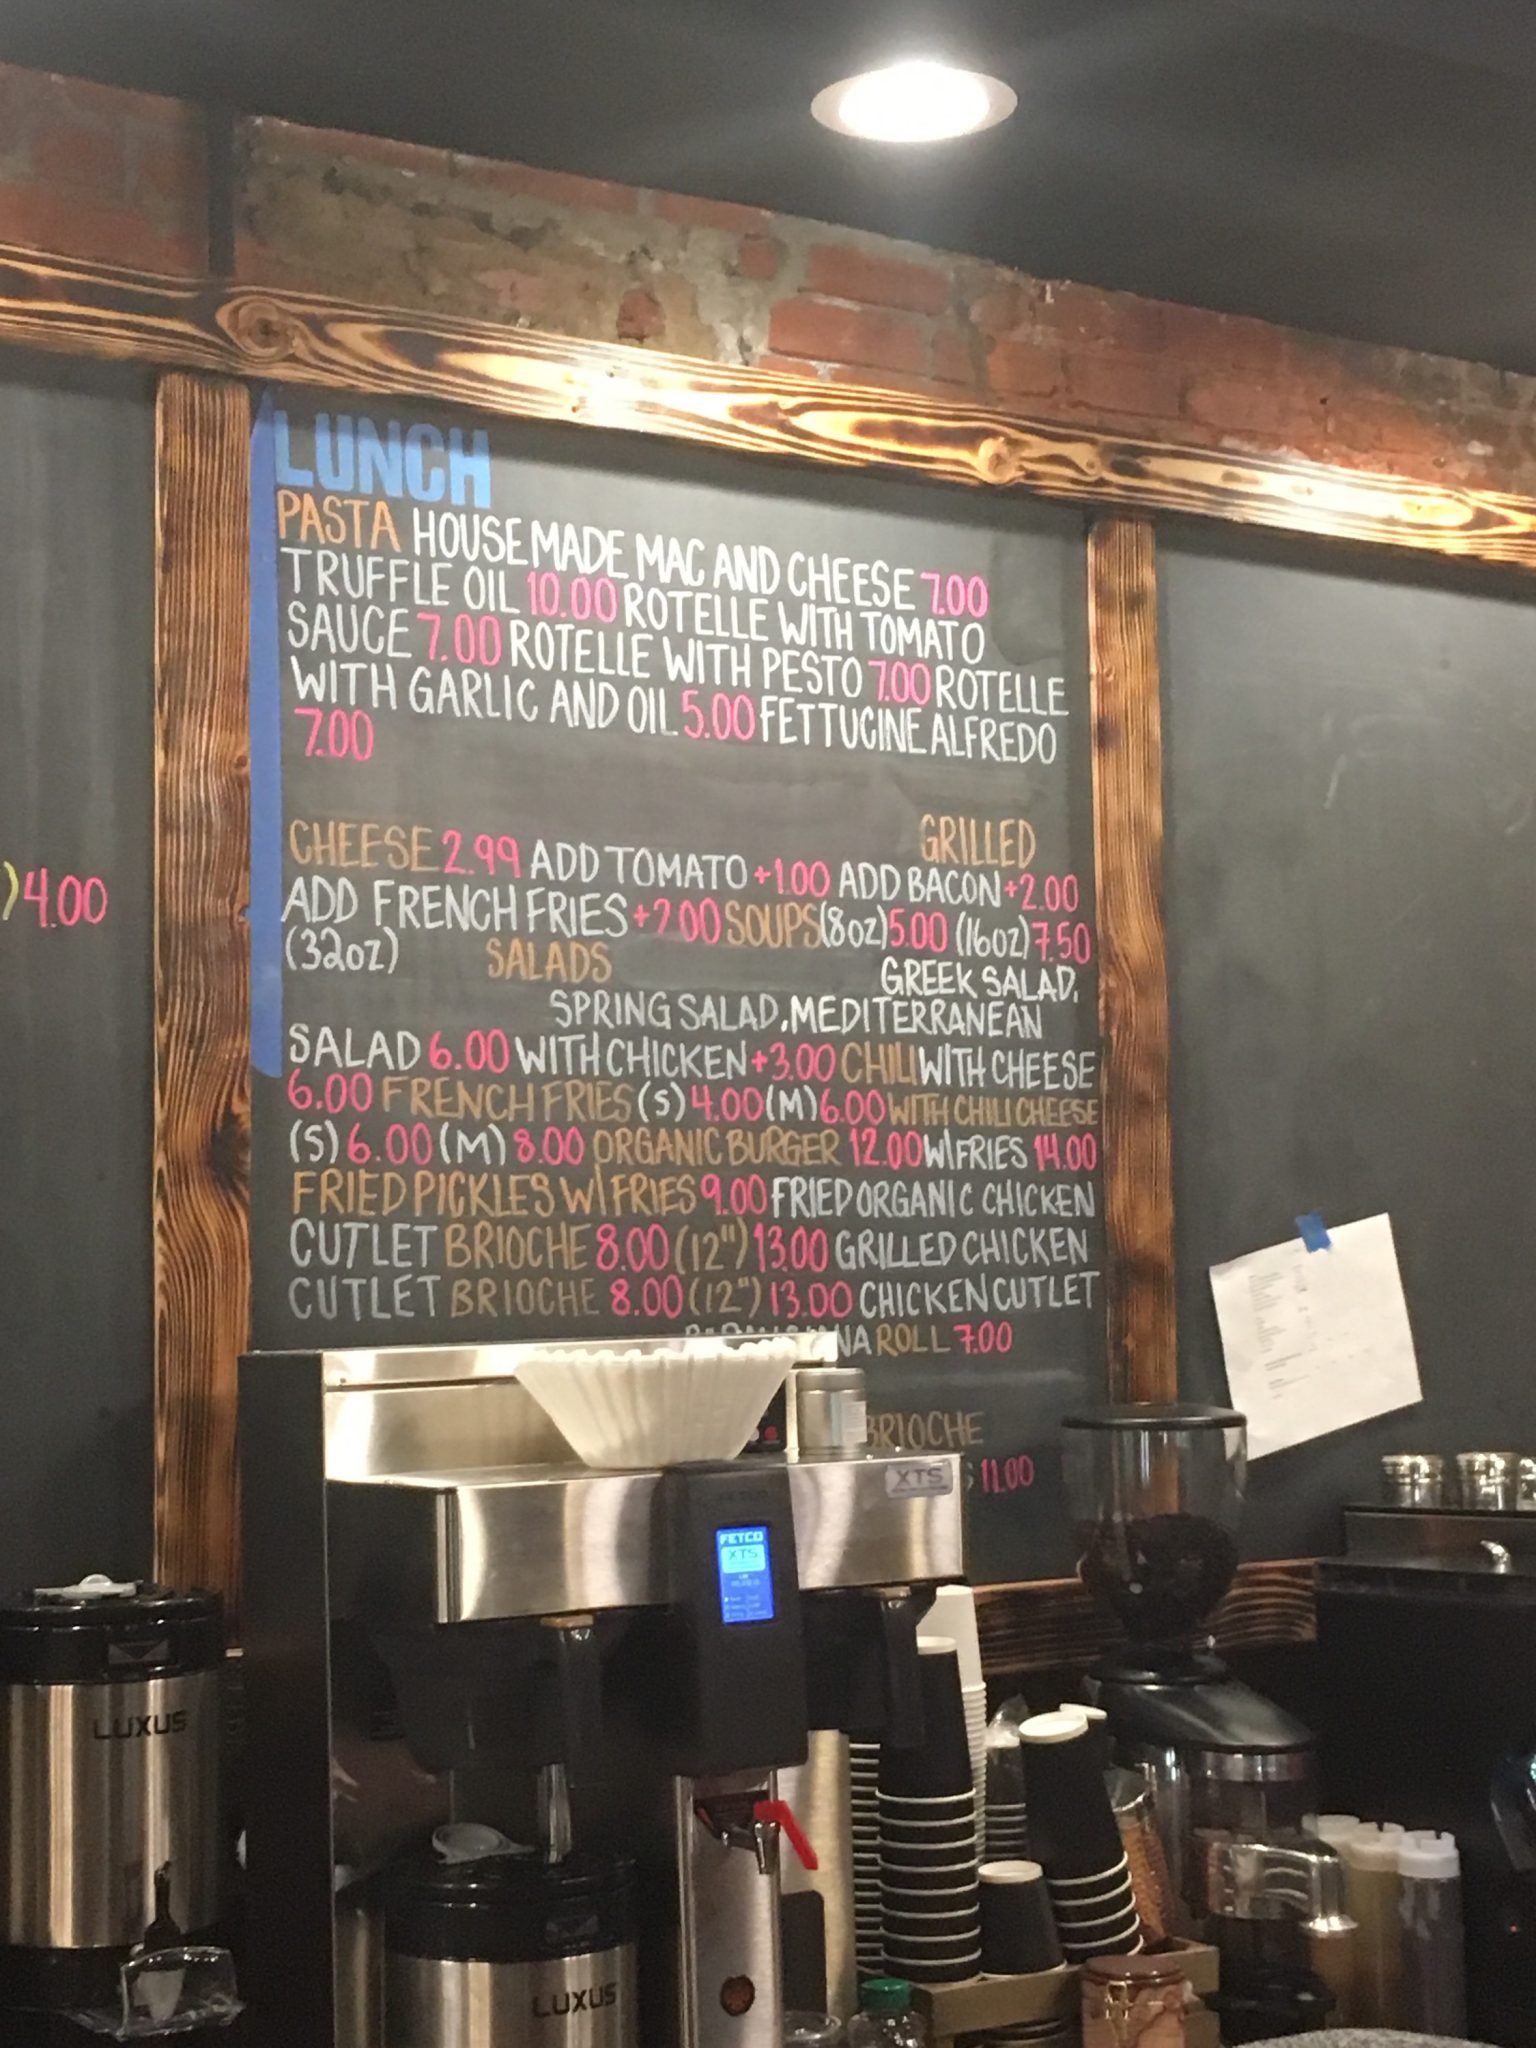 LUNCH
PASTA HOUSE MADE MAC AND CHEESE 7.00
TRUFFLE OIL 10.00 ROTELLE WITH TOMATO
SAUCE 7.00 ROTELLE WITH PESTO 7.00 ROTELLE
WITH GARLIC AND OIL 5.00 FETTUCINE ALFREDO
7.00
GRILLED
CHEESE 2.99 ADD TOMATO +1.00 ADD BACON +2.00
ADD FRENCH FRIES +2.00 SOUPS (8oz) 5.00 (16oz) 7.50
(32oz) SALADS GREEK SALAD,
SPRING SALAD, MEDITERRANEAN
SALAD 6.00 WITH CHICKEN +3.00 CHILI WITH CHEESE
6.00 FRENCH FRIES (S) 4.00 (M) 6.00 WITH CHILI CHEESE
(S) 6.00 (M) 8.00 ORGANIC BURGER 12.00 W/FRIES 14.00
FRIED PICKLES W/FRIES 9.00 FRIED ORGANIC CHICKEN
CUTLET BRIOCHE 8.00 (12") 13.00 GRILLED CHICKEN
CUTLET BRIOCHE 8.00 (12") 13.00 CHICKEN CUTLET
ROLL 7.00
BRIOCHE
11.00
) 4.00
XTS
FETCO
XTS
LUXUS
LUXUS